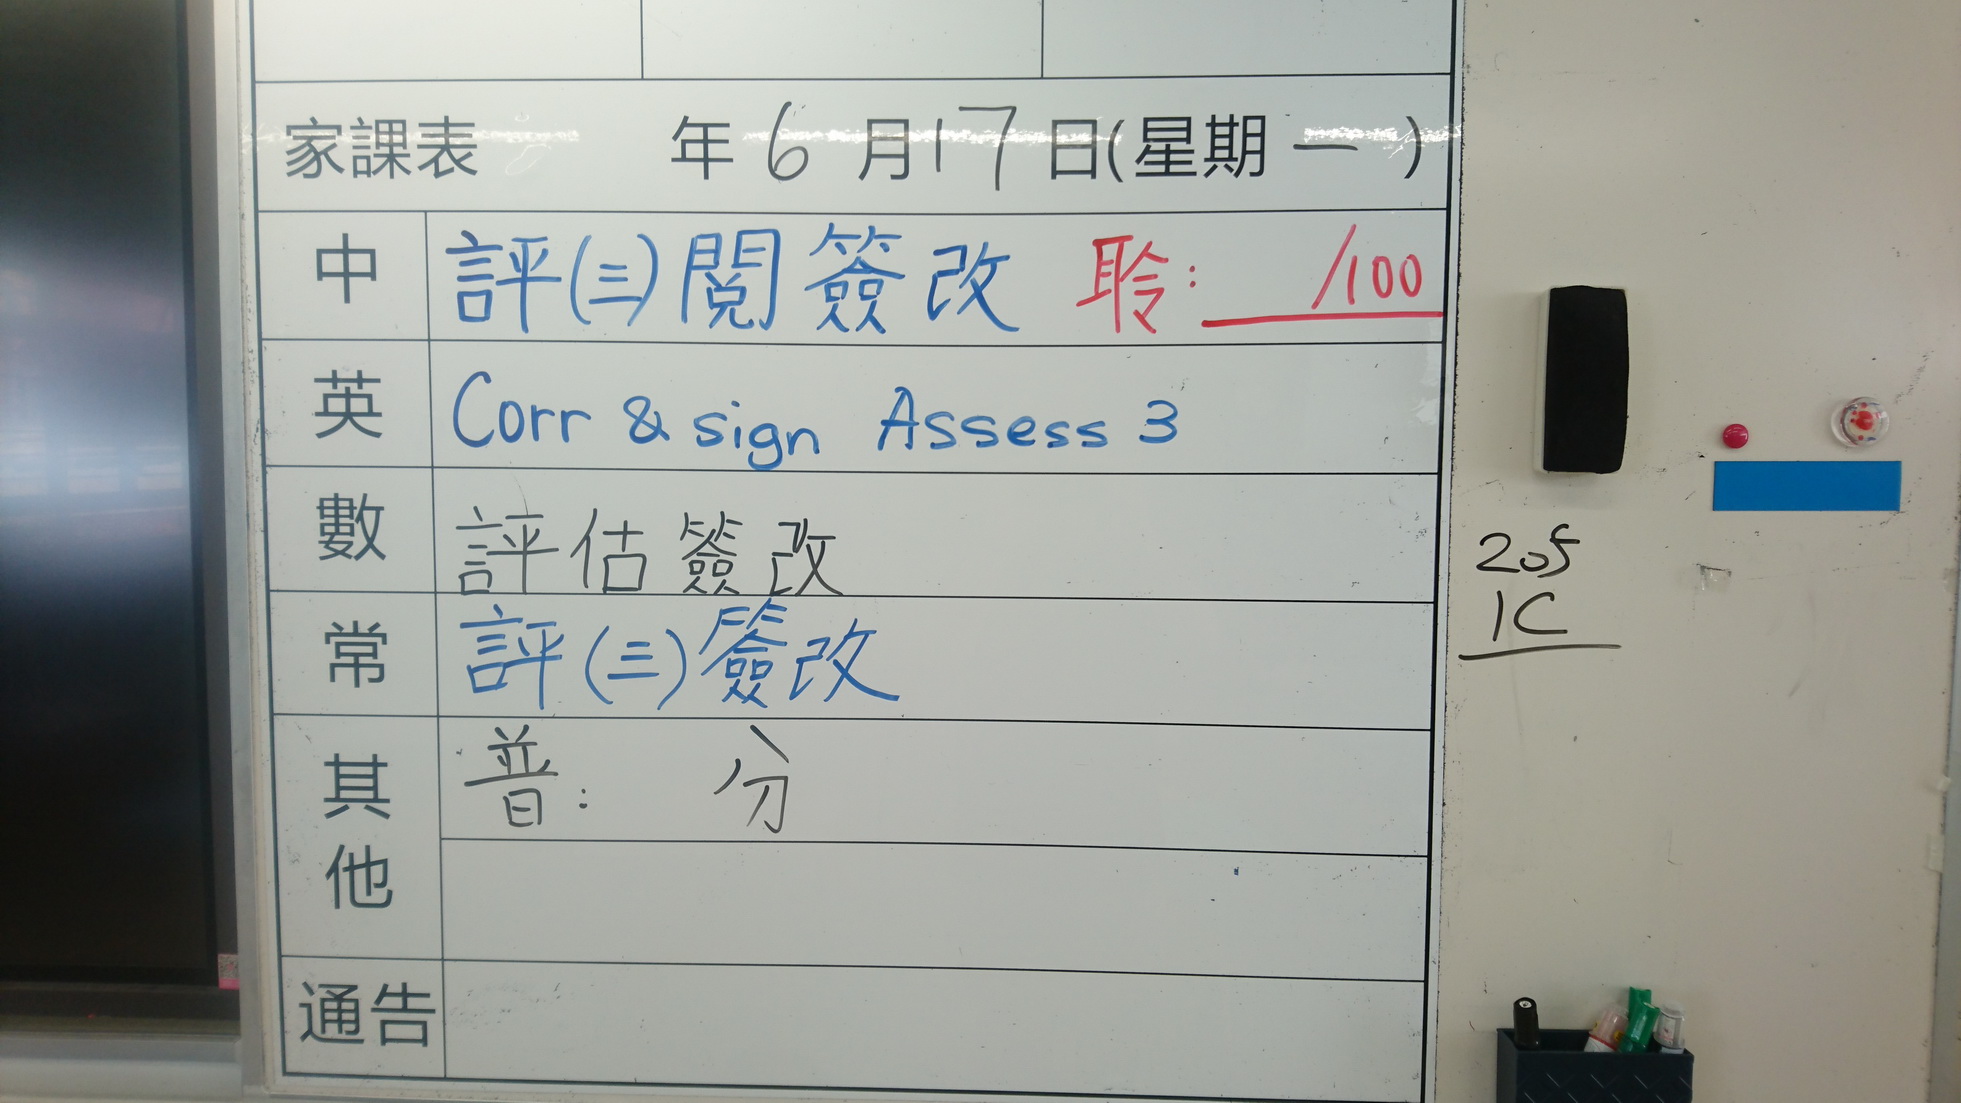 家課表 年6月17日(星期一)
中 評(三)閱簽改 聆: /100
英 Corr & sign Assess 3
數 評估簽改
常 評(三)簽改
其他 普: 分
通告
205
1C